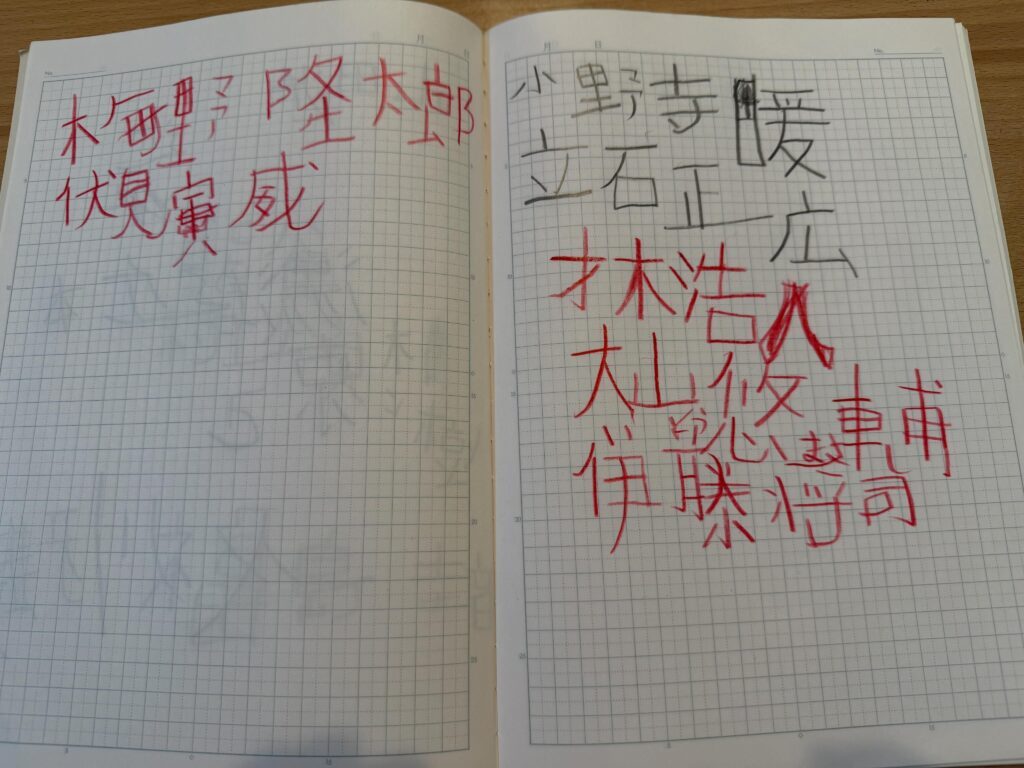 No.
梅野 隆太郎
伏見寅威
No.
小野寺暖
立石正広
才木浩人
大山悠輔
伊藤将司